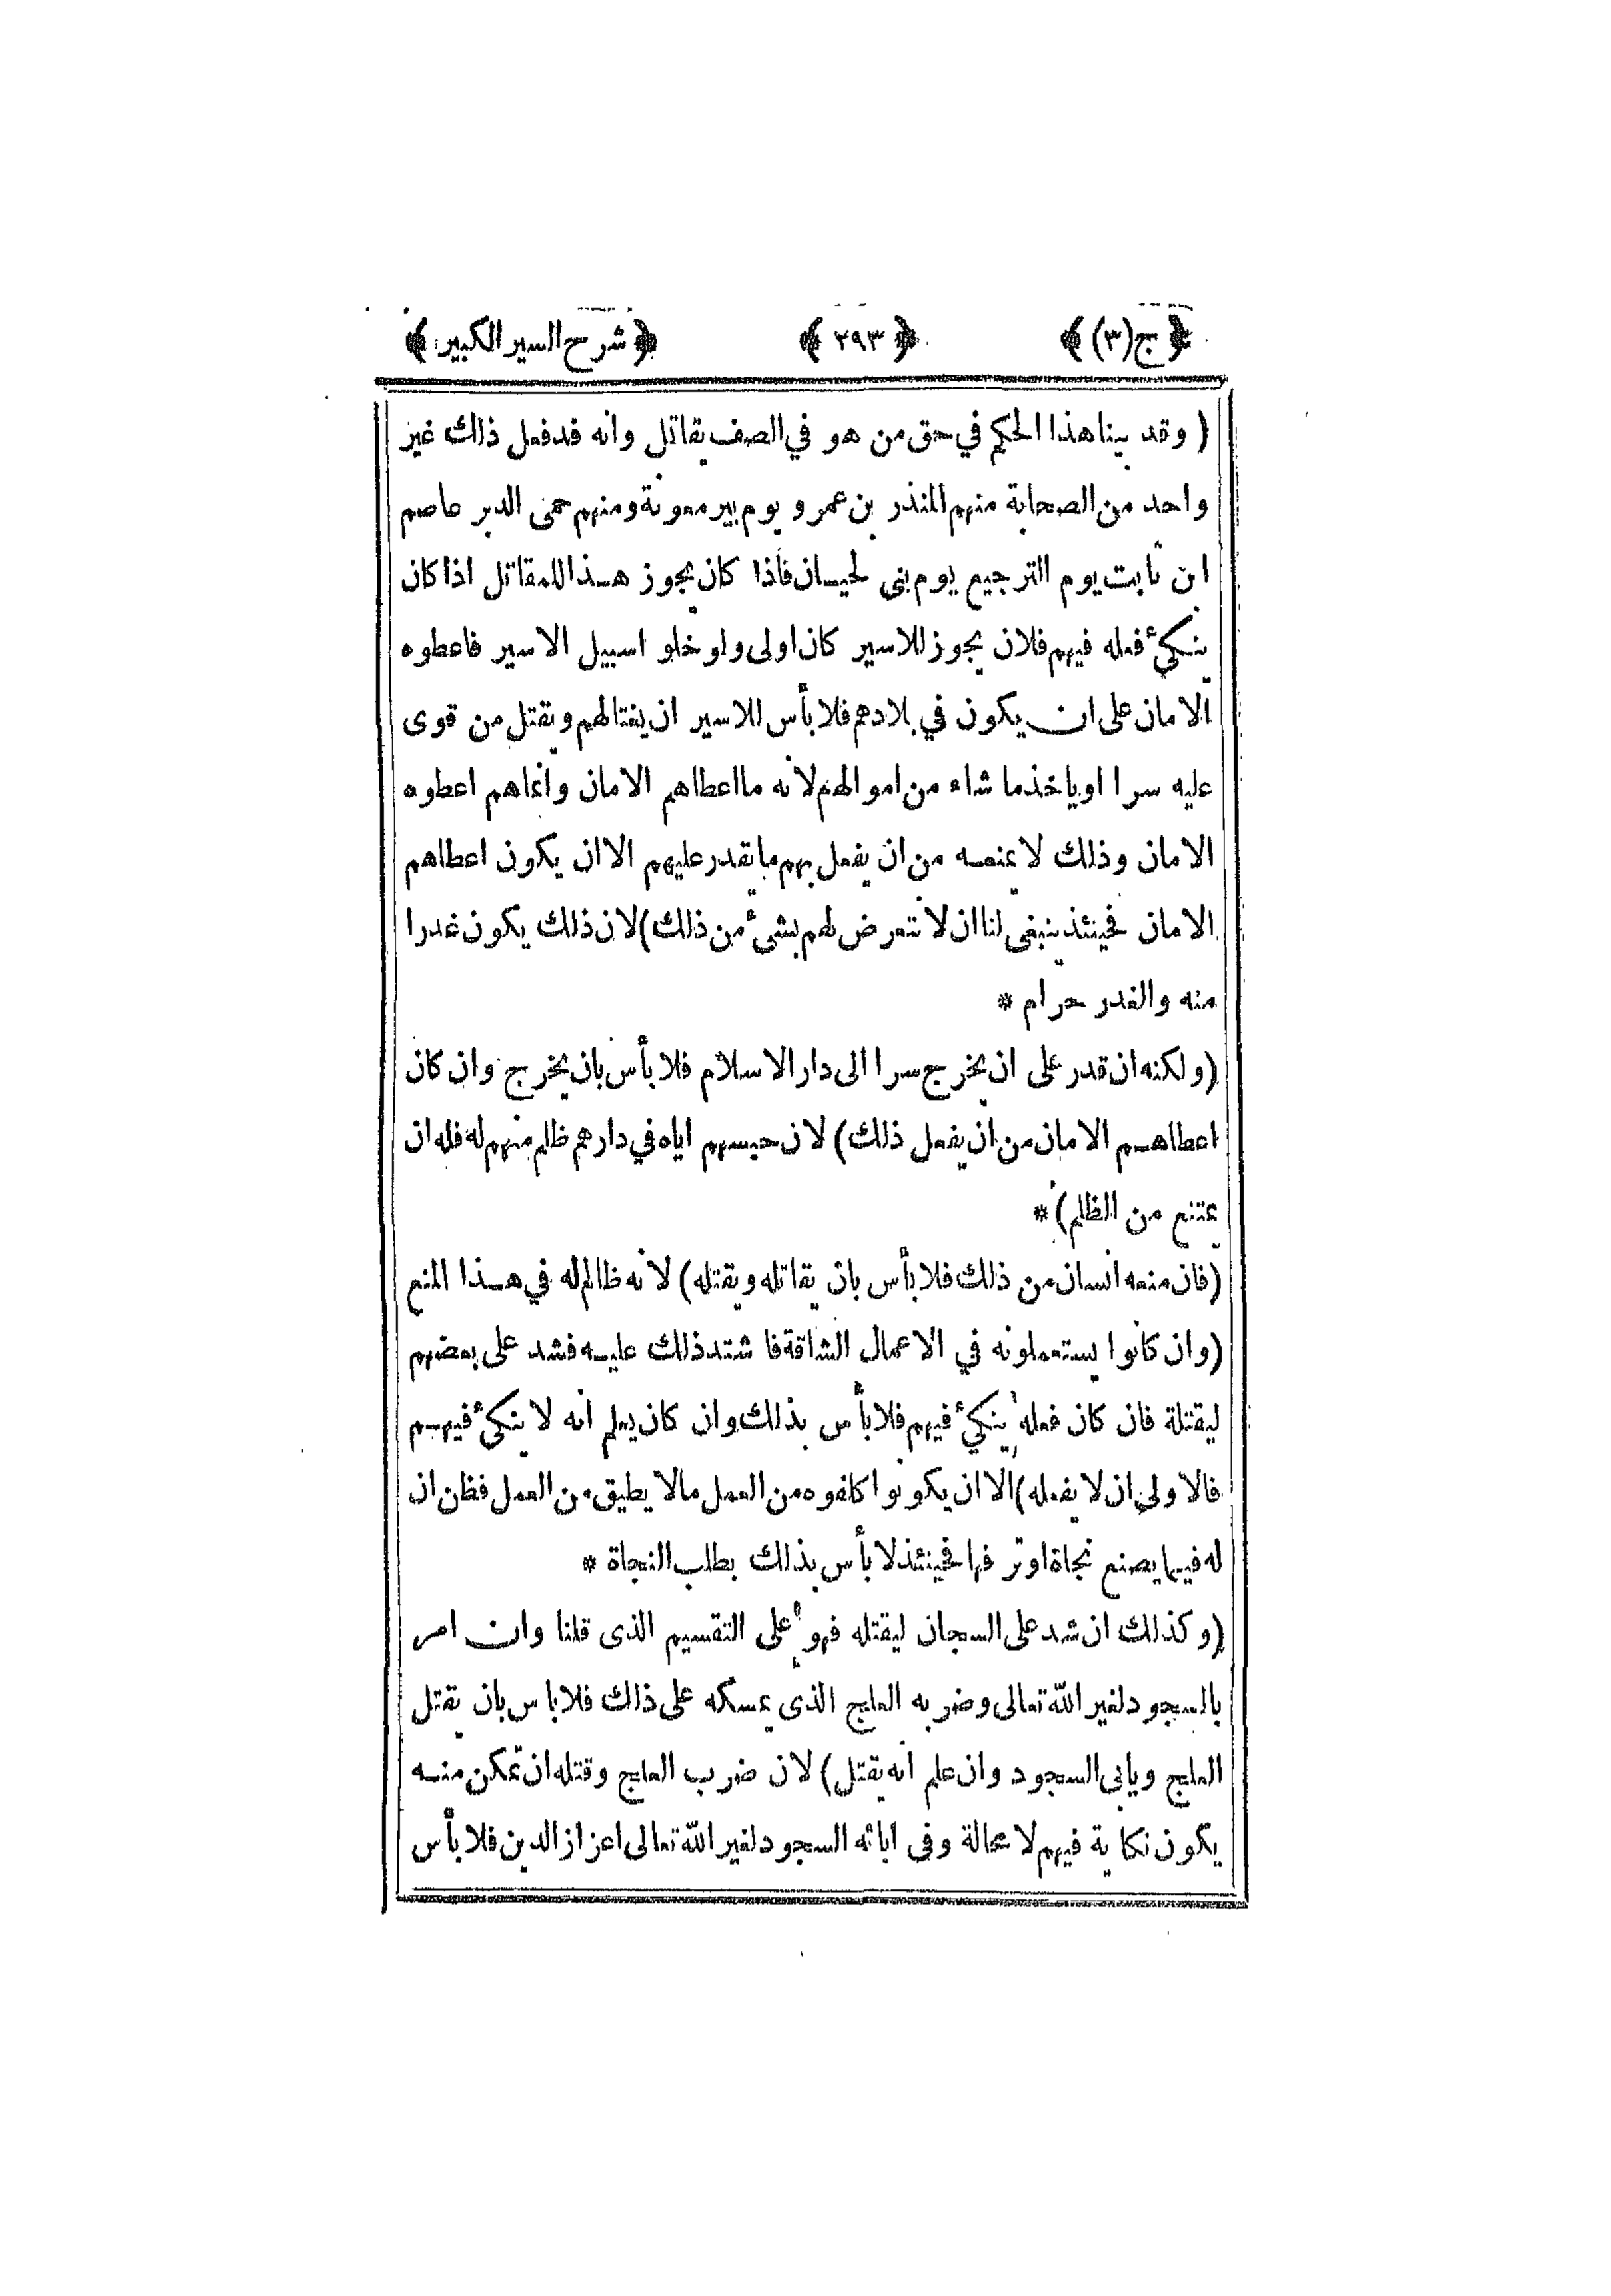 ﴿ ج (٣) ﴾ ﴿ ٢٩٣ ﴾ ﴿ شرح السير الكبير ﴾
( وقد بينا هذا الحكم في حق من هو في الصف يقاتل وانه قد فعل ذلك غير
واحد من الصحابة منهم المنذر بن عمرو يوم بير معونة ومنهم حمى الدبر عاصم
ابن ثابت يوم الترجيع يوم بنى لحيان فاذا كان يجوز هذا للمقاتل اذا كان
ينكئ فعله فيهم فلان يجوز للاسير كان اولى ولو خلو اسبيل الاسير فاعطوه
الامان على ان يكون في بلادهم فلا بأس للاسير ان يغتالهم ويقتل من قوى
عليه سرا او ياخذ ما شاء من اموالهم لانه ما اعطاهم الامان وانما هم اعطوه
الامان وذلك لا يمنعه من ان يفعل بهم ما يقدر عليهم الا ان يكون اعطاهم
الامان فحينئذ ينبغى لنا ان لا نتعرض لهم بشئ من ذلك) لان ذلك يكون غدرا
منه والغدر حرام *
(ولكنه ان قدر على ان يخرج سرا الى دار الاسلام فلا بأس بان يخرج وان كان
اعطاهم الامان من ان يفعل ذلك) لان حبسهم اياه في دارهم ظلم منهم له فله ان
يمتنع من الظلم) *
(فان منعه انسان من ذلك فلا بأس بان يقاتله ويقتله) لانه ظالم له في هذا المنع
(وان كانوا يستعملونه في الاعمال الشاقة فاشتد ذلك عليه فشد على بعضهم
ليقتلة فان كان فعله ينكئ فيهم فلا بأس بذلك وان كان يعلم انه لا ينكئ فيهم
فالاولى ان لا يفعله) الا ان يكونوا كلفوه من العمل مالا يطيق من العمل فظن ان
له فيما يصنع نجاة او تر فها فحينئذ لا بأس بذلك بطلب النجاة *
(وكذلك ان شد على السجان ليقتله فهو على التقسيم الذى قلنا وان امر
بالسجود لغير الله تعالى وضربه العلج الذى يمسكه على ذلك فلا باس بان يقتل
العلج ويابى السجود وان علم انه يقتل) لان ضرب العلج وقتله ان تمكن منه
يكون نكاية فيهم لا محالة وفى ابائه السجود لغير الله تعالى اعزاز الدين فلا بأس